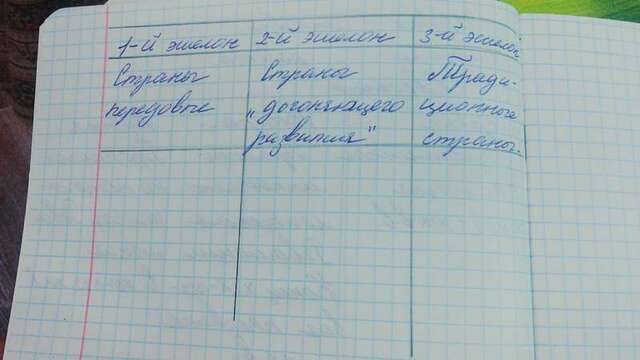 1-й эшелон 2-й эшелон 3-й эшелон
Страны Страны Тради-
передовые „догоняющего ционные
развития" страны.